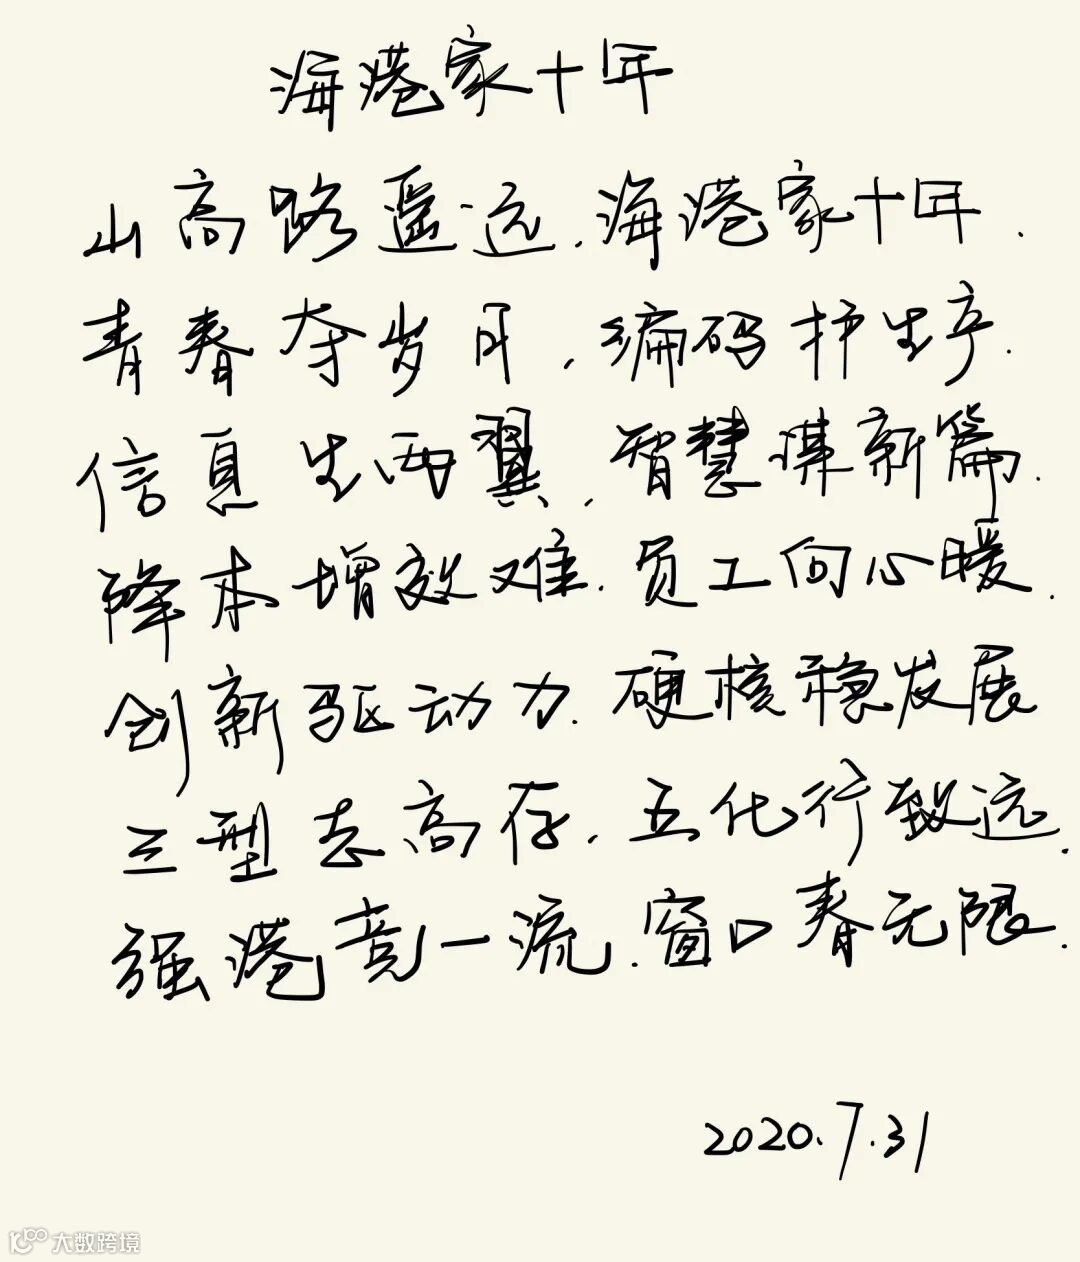 海港家十年
山高路遥远.海港家十年.
青春夺岁月,编码护生产.
信息生两翼,智慧谋新篇.
降本增效难.员工向心暖.
创新驱动力.硬核稳发展
三型志高存.五化行致远.
强港竞一流.窗口春无限.
2020.7.31
大数跨境